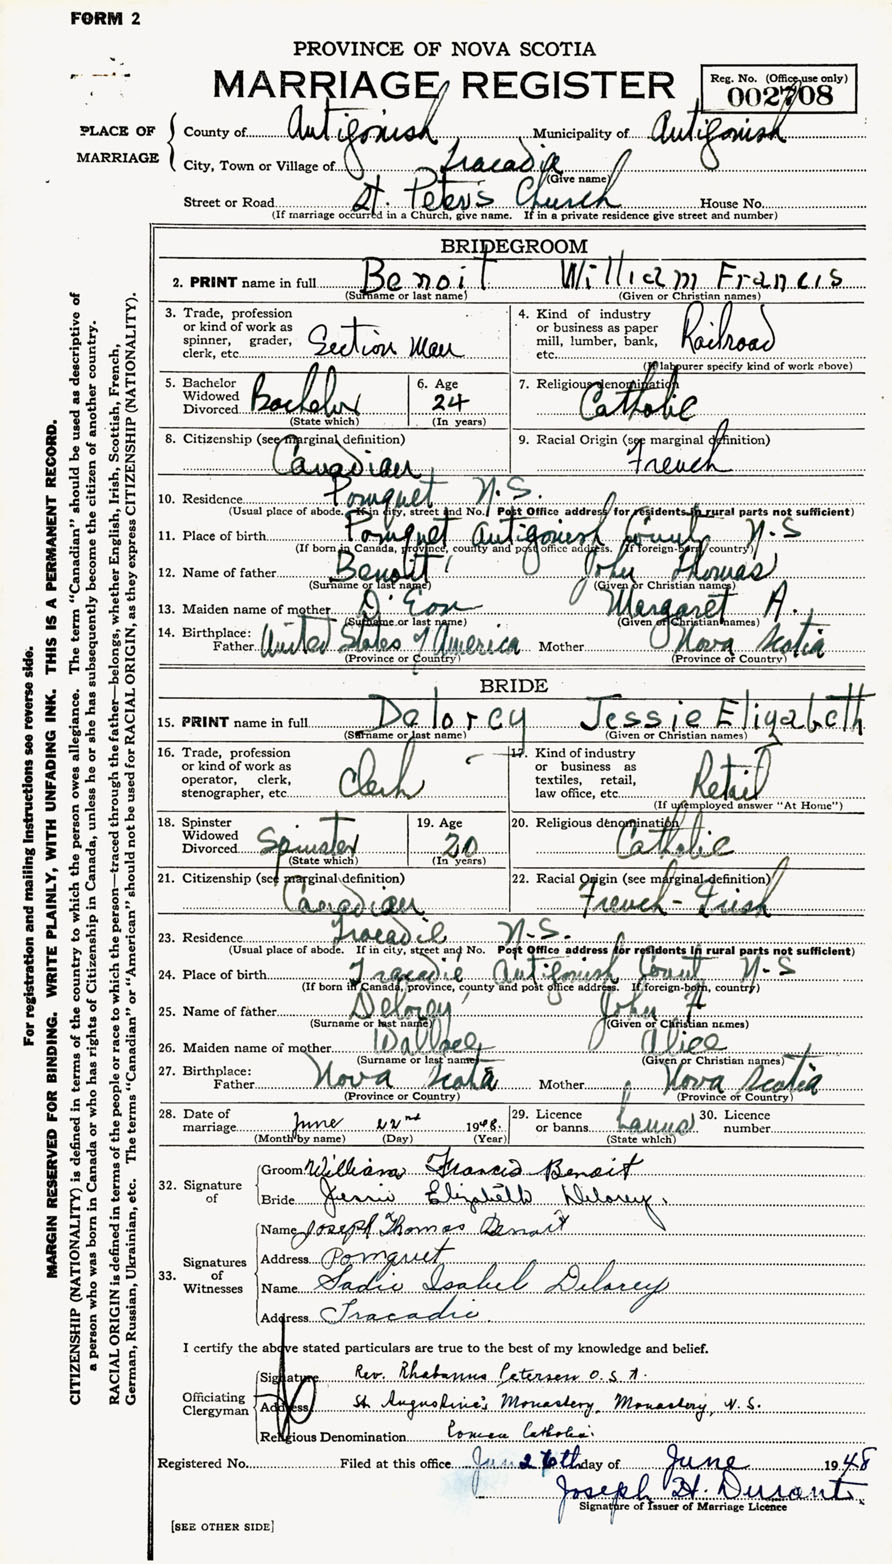 FORM 2
PROVINCE OF NOVA SCOTIA
MARRIAGE REGISTER
Reg. No. (Office use only)
002708
PLACE OF MARRIAGE
County of Antigonish Municipality of Antigonish
City, Town or Village of Tracadie
(Give name)
Street or Road St. Peter's Church House No.
(If marriage occurred in a Church, give name. If in a private residence give street and number)
BRIDEGROOM
2. PRINT name in full Benoit William Francis
(Surname or last name) (Given or Christian names)
3. Trade, profession or kind of work as spinner, grader, clerk, etc. Section Man
4. Kind of industry or business as paper mill, lumber, bank, etc. Railroad
(If labourer specify kind of work above)
5. Bachelor Widowed Divorced Bachelor
(State which)
6. Age 24
(In years)
7. Religious denomination Catholic
8. Citizenship (see marginal definition) Canadian
9. Racial Origin (see marginal definition) French
10. Residence Pomquet N.S.
(Usual place of abode. If in city, street and No. Post Office address for residents in rural parts not sufficient)
11. Place of birth Pomquet Antigonish County N-S
(If born in Canada, province, county and post office address. If foreign-born, country)
12. Name of father Benoit John Thomas
(Surname or last name) (Given or Christian names)
13. Maiden name of mother D'Eon Margaret A.
(Surname or last name) (Given or Christian names)
14. Birthplace: Father United States of America Mother Nova Scotia
(Province or Country) (Province or Country)
BRIDE
15. PRINT name in full Delorey Jessie Elizabeth
(Surname or last name) (Given or Christian names)
16. Trade, profession or kind of work as operator, clerk, stenographer, etc. Clerk
17. Kind of industry or business as textiles, retail, law office, etc. Retail
(If unemployed answer "At Home")
18. Spinster Widowed Divorced Spinster
(State which)
19. Age 20
(In years)
20. Religious denomination Catholic
21. Citizenship (see marginal definition) Canadian
22. Racial Origin (see marginal definition) French-Irish
23. Residence Tracadie N-S.
(Usual place of abode. If in city, street and No. Post Office address for residents in rural parts not sufficient)
24. Place of birth Tracadie Antigonish Count N-S
(If born in Canada, province, county and post office address. If foreign-born, country)
25. Name of father Delorey John A
(Surname or last name) (Given or Christian names)
26. Maiden name of mother Wallace Alice
(Surname or last name) (Given or Christian names)
27. Birthplace: Father Nova Scotia Mother Nova Scotia
(Province or Country) (Province or Country)
28. Date of marriage June 22nd 1948.
(Month by name) (Day) (Year)
29. Licence or banns Banns
(State which)
30. Licence number
32. Signature of
Groom William Francis Benoit
Bride Jessie Elizabeth Delorey.
33. Signatures of Witnesses
Name Joseph Thomas Benoit
Address Pomquet
Name Sadie Isabel Delorey
Address Tracadie.
I certify the above stated particulars are true to the best of my knowledge and belief.
Officiating Clergyman
Signature Rev. Rhabanus Petersen O.S.A.
Address St. Augustine's Monastery, Monastery, N.S.
Religious Denomination Roman Catholic.
Registered No. Filed at this office Jun 26th day of June 1948
Joseph H. Durant
Signature of Issuer of Marriage Licence
[SEE OTHER SIDE]
For registration and mailing instructions see reverse side.
MARGIN RESERVED FOR BINDING. WRITE PLAINLY, WITH UNFADING INK. THIS IS A PERMANENT RECORD.
CITIZENSHIP (NATIONALITY) is defined in terms of the country to which the person owes allegiance. The term "Canadian" should be used as descriptive of
a person who was born in Canada or who has rights of Citizenship in Canada, unless he or she has subsequently become the citizen of another country.
RACIAL ORIGIN is defined in terms of the people or race to which the person—traced through the father—belongs, whether English, Irish, Scottish, French,
German, Russian, Ukrainian, etc. The terms "Canadian" or "American" should not be used for RACIAL ORIGIN, as they express CITIZENSHIP (NATIONALITY).